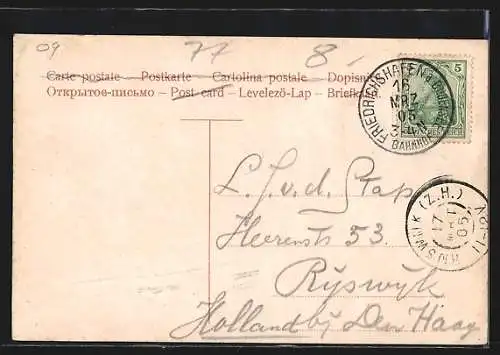 09 77 8-
Carte postale — Postkarte — Cartolina postale — Dopisni
Открытое-письмо — Post card — Levelező-Lap — Briefka
5
FRIEDRICHSHAFEN
16
MRZ
05
BAHNHOF
RIJSWIJK (Z.H.)
17
MRT
05
L. J. v. d. Stap
Heerenstr 53.
Ryswyk
Holland by Den Haag